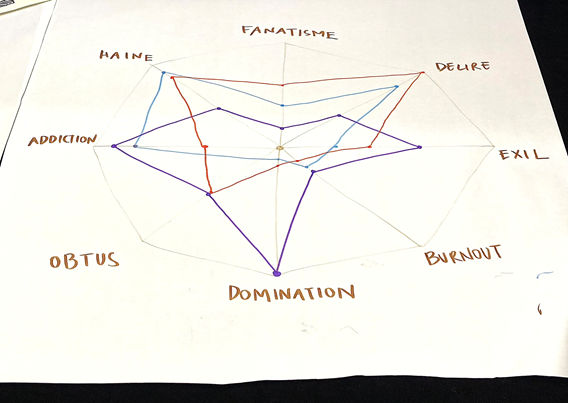 FANATISME
HAINE
DELIRE
ADDICTION
EXIL
OBTUS
BURNOUT
DOMINATION